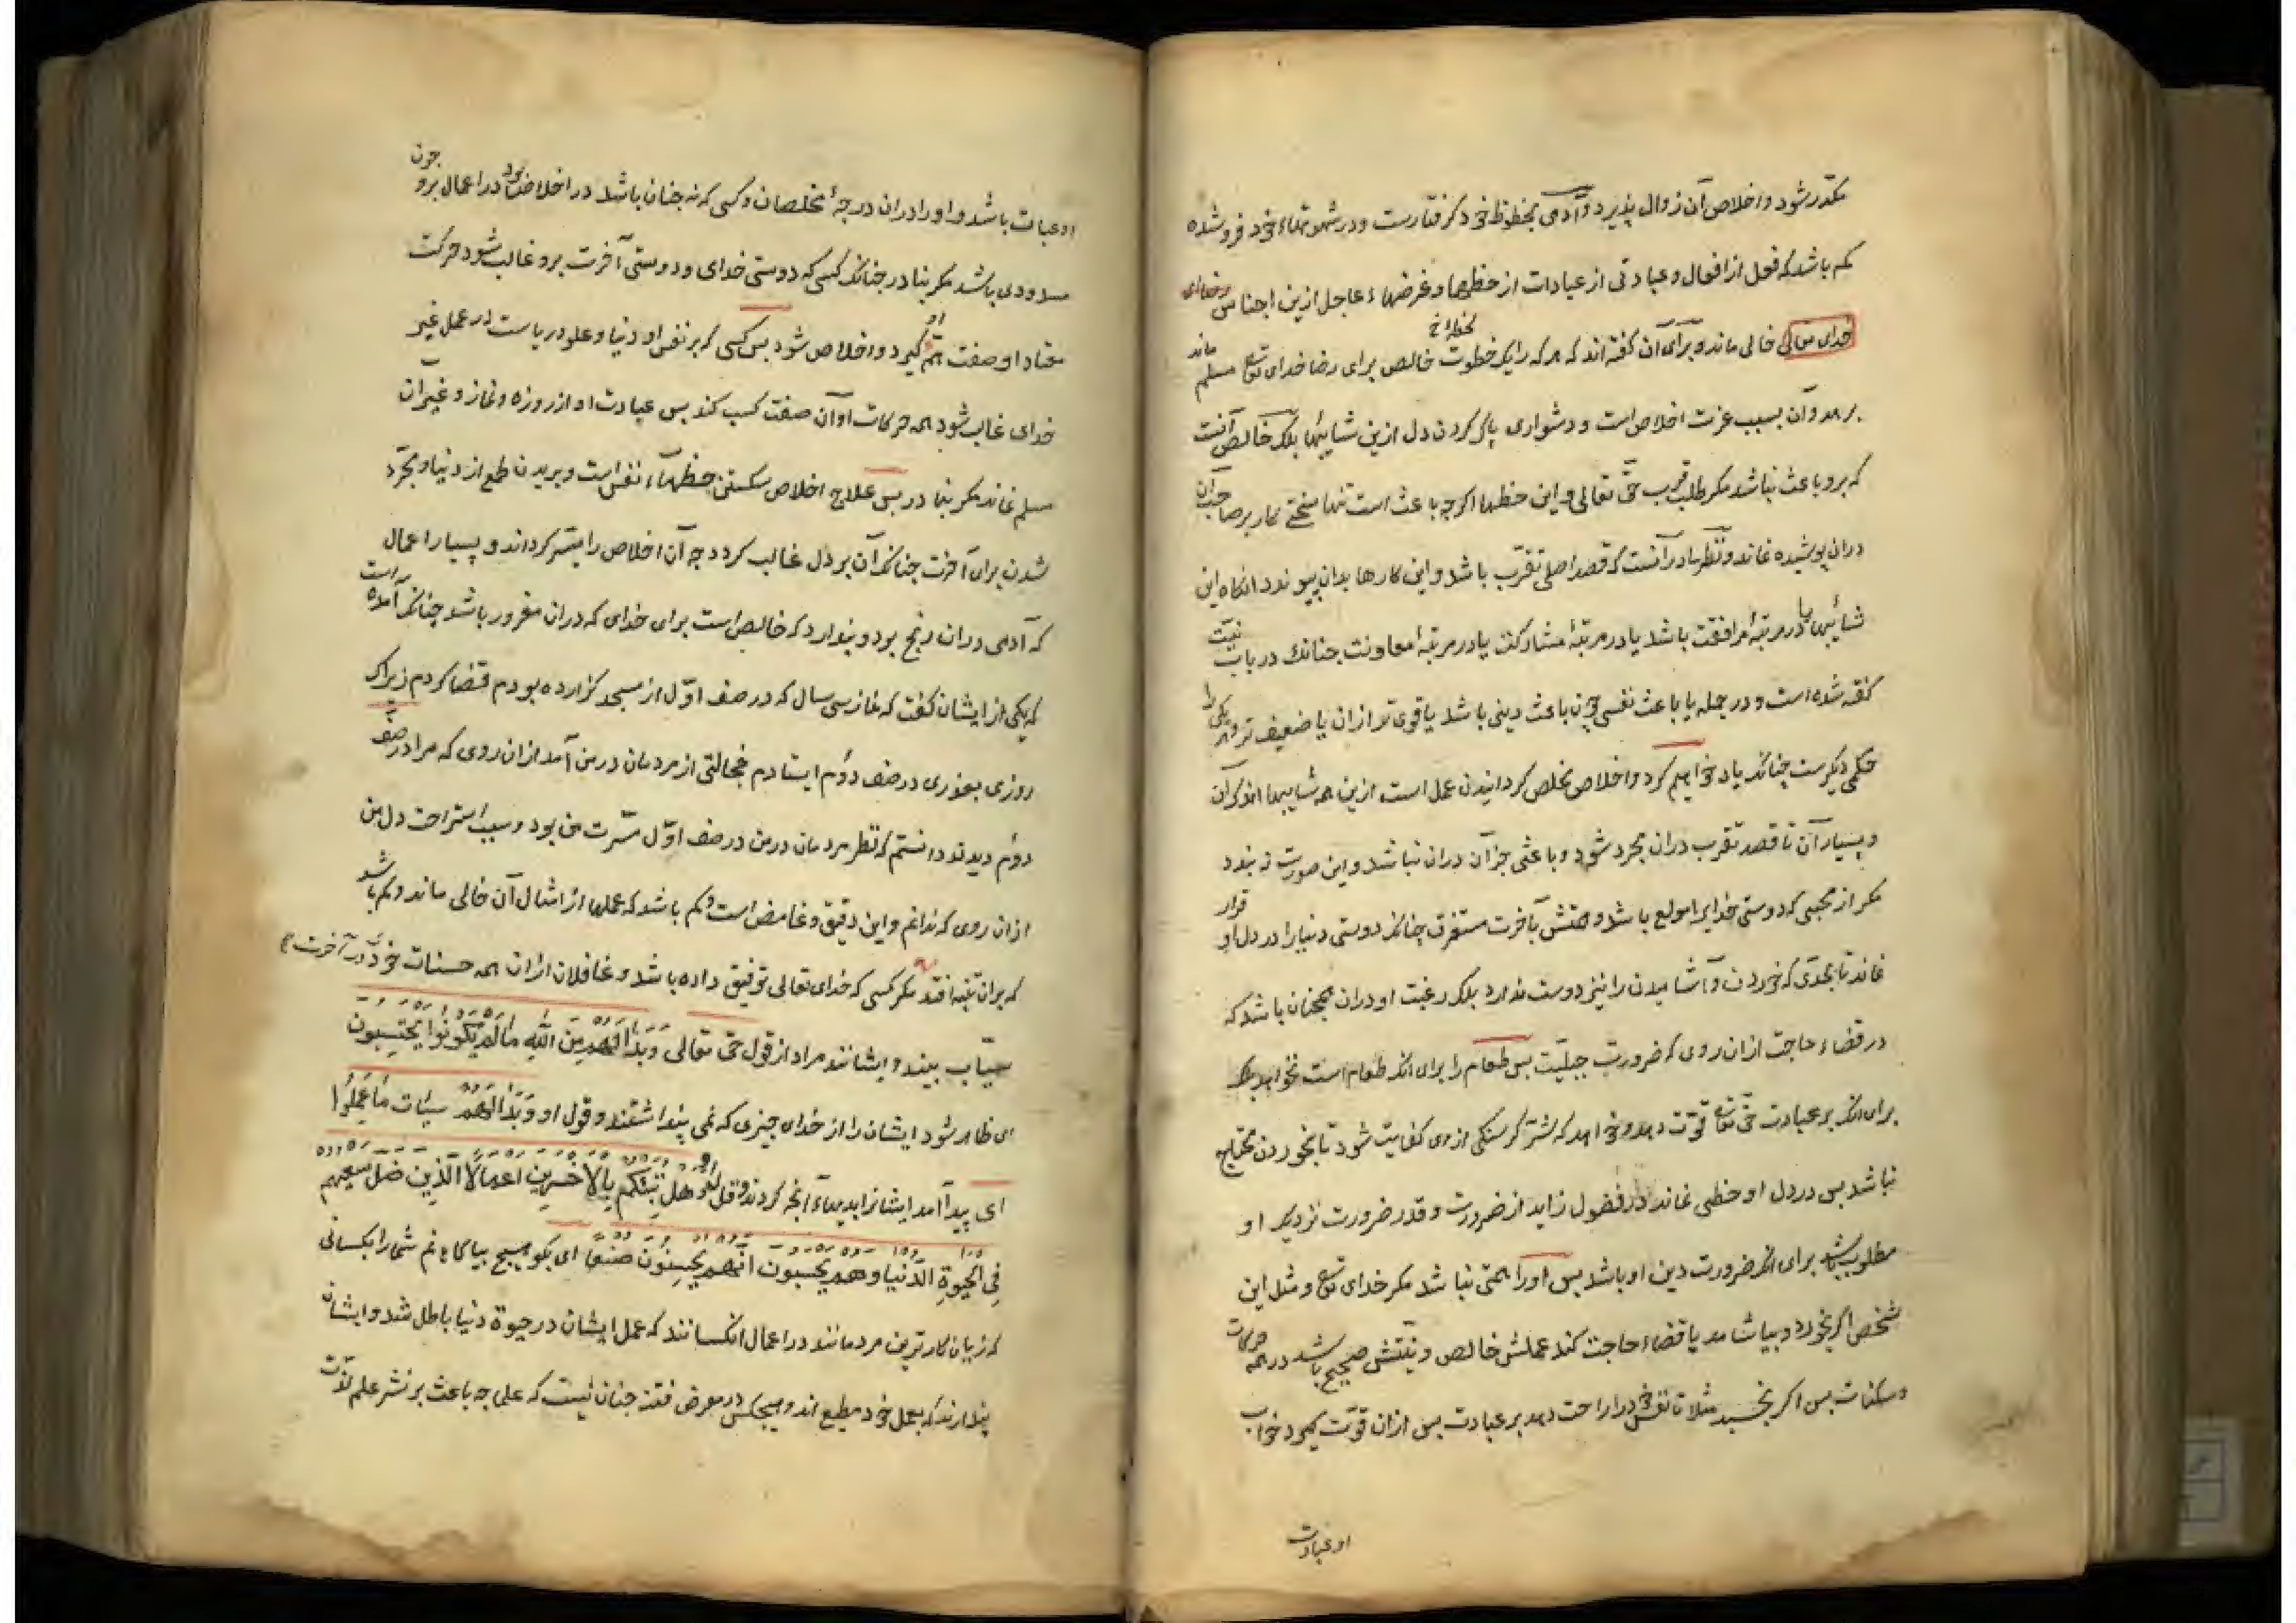 مکدر شود و اخلاص آن زوال پذیرد و آدمی بحظوظ خود گرفتارست و در شهوتهاء خود فرو شده
کم باشد که فعل از افعال و عبادتی از عبادات از حظها و غرضهاء عاجل ازین اجناس
خدای تعالی خالی ماند و برای آن گفته اند که هر که را یک خطوت خالص برای رضا خدای تع مسلم ماند
برهد و آن بسبب عزت اخلاص است و دشواری پاک کردن دل ازین شایبها بلک خالص آنست
که برو باعث نباشد مکر طلب قرب حق تعالی و این حظها اکرچه باعث است تنها سختی کار بر صاحب آن
دران پوشیده نماند و نظر ما در آنست که قصد اصلی تقرب باشد و این کارها بدان پیوندد انکاه این
شائبها یا در مرتبۀ موافقت باشد یا در مرتبۀ مشارکت یا در مرتبۀ معاونت جنانک در باب نیت
کفته شده است و در جمله یا باعث نفسی چون باعث دینی باشد یا قوی تر ازان یا ضعیف تر و هر یکی را
حکمی دیکرست چنانکه یاد خواهیم کرد و اخلاص مخلص کردانیدن عمل است ازین همه شایبها اندک آن
و بسیار آن تا قصد تقرب دران مجرد شود و باعثی جز آن دران نباشد و این صورت نه بندد
مکر از محبی که دوستی خدایرا مولع باشد و همتش بآخرت مستغرق چنانکه دوستی دنیا را در دل او قرار
نماند تا بحدی که خوردن و آشامیدن را نیز دوست ندارد بلک رغبت او دران همچنان باشد که
در قضاء حاجت ازان روی که ضرورت جبلیت بس طعام را برای انکه طعام است نخواهد بلک
برای انکه بر عبادت حق تع قوت دهد و خواهد که شر کرسنکی از وی کفایت شود تا بخوردن محتاج
نباشد بس در دل او حظی نماند در فضول زاید از ضرورت و قدر ضرورت نزدیک او
مطلوب باشد برای انکه ضرورت دین او باشد بس اورا همتی نباشد مکر خدای تع و مثل این
شخص اکر بخورد و بیاشامد یا قضاء حاجت کند عملش خالص و نیتش صحیح باشد در همه حرکات
و سکنات بس اکر بخسبد مثلا تا نفس خود را راحت دهد بر عبادت بس ازان قوت کیرد خواب
او عبادت
او عبادت باشد و او را دران درجۀ مخلصان و کسی که نه چنان باشد در اخلاص بود در اعمال برو چون
مسدودی باشد مکر بنادر جنانک کسی که دوستی خدای و دوستی آخرت برو غالب شود حرکت
معتاد او صفت هم او کیرد و اخلاص شود بس کسی که بر نفس او دنیا و علو و ریاست در عمل غیر
خدای غالب شود همه حرکات او آن صفت کسب کند بس عبادت او از روزه و نماز و غیر آن
مسلم نماند مکر بنادر بس علاج اخلاص شکستن حظهاء نفس است و بریدن طمع از دنیا و مجرد
شدن برای آخرت چنانکه آن بر دل غالب کردد چه آن اخلاص را میسر کرداند و بسیار اعمال
که آدمی دران رنج برد و پندارد که خالص است برای خدای که دران مغرور باشد چنانکه آمده است
که یکی از ایشان کفت که نماز سی سال که در صف اول از مسجد کزارده بودم قضا کردم زیراک
روزی بعذری در صف دوم ایستادم خجالتی از مردمان در من آمد ازان روی که مرا در صف
دوم دیدند دانستم که نظر مردمان در من در صف اول مسرت من بود و سبب استراحت دل من
ازان روی که ندانم و این دقیق و غامض است و کم باشد که عملها از امثال آن خالی ماند و کم باشد
که بران تنبه افتد مکر کسی که خدای تعالی توفیق داده باشد و غافلان ازان همه حسنات خود در آخرت
سیئات بینند و ایشانند مراد از قول حق تعالی وَبَدَا لَهُم مِنَ اللّٰهِ مَا لَم یَکُونُوا یَحْتَسِبُون
ای ظاهر شود ایشان را از خدای چیزی که نمی پنداشتند و قول او وَبَدَا لَهُمْ سیئات مَا عَمِلُوا
ای پیدا آمد ایشانرا بدیهاء آنچه کردند و قوله قل هَل نُنَبِّئُکُم بِالاَخْسَرِینَ اَعْمَالًا الَّذِینَ ضَلَّ سَعْیُهُم
فِی الحَیٰوةِ الدُّنیا وَهُم یَحْسَبُونَ اَنَّهُم یُحْسِنُونَ صُنْعًا ای بکو هیچ بیاکاهانم شما را بکسانی
که زیان کارترین مردمانند در اعمال انکسانند که عمل ایشان در حیوة دنیا باطل شد و ایشان
پندارند که بعمل خود مطیع اند و هیچکس در معرض فتنه جنان نیست که علما چه باعث بر نشر علم لذت